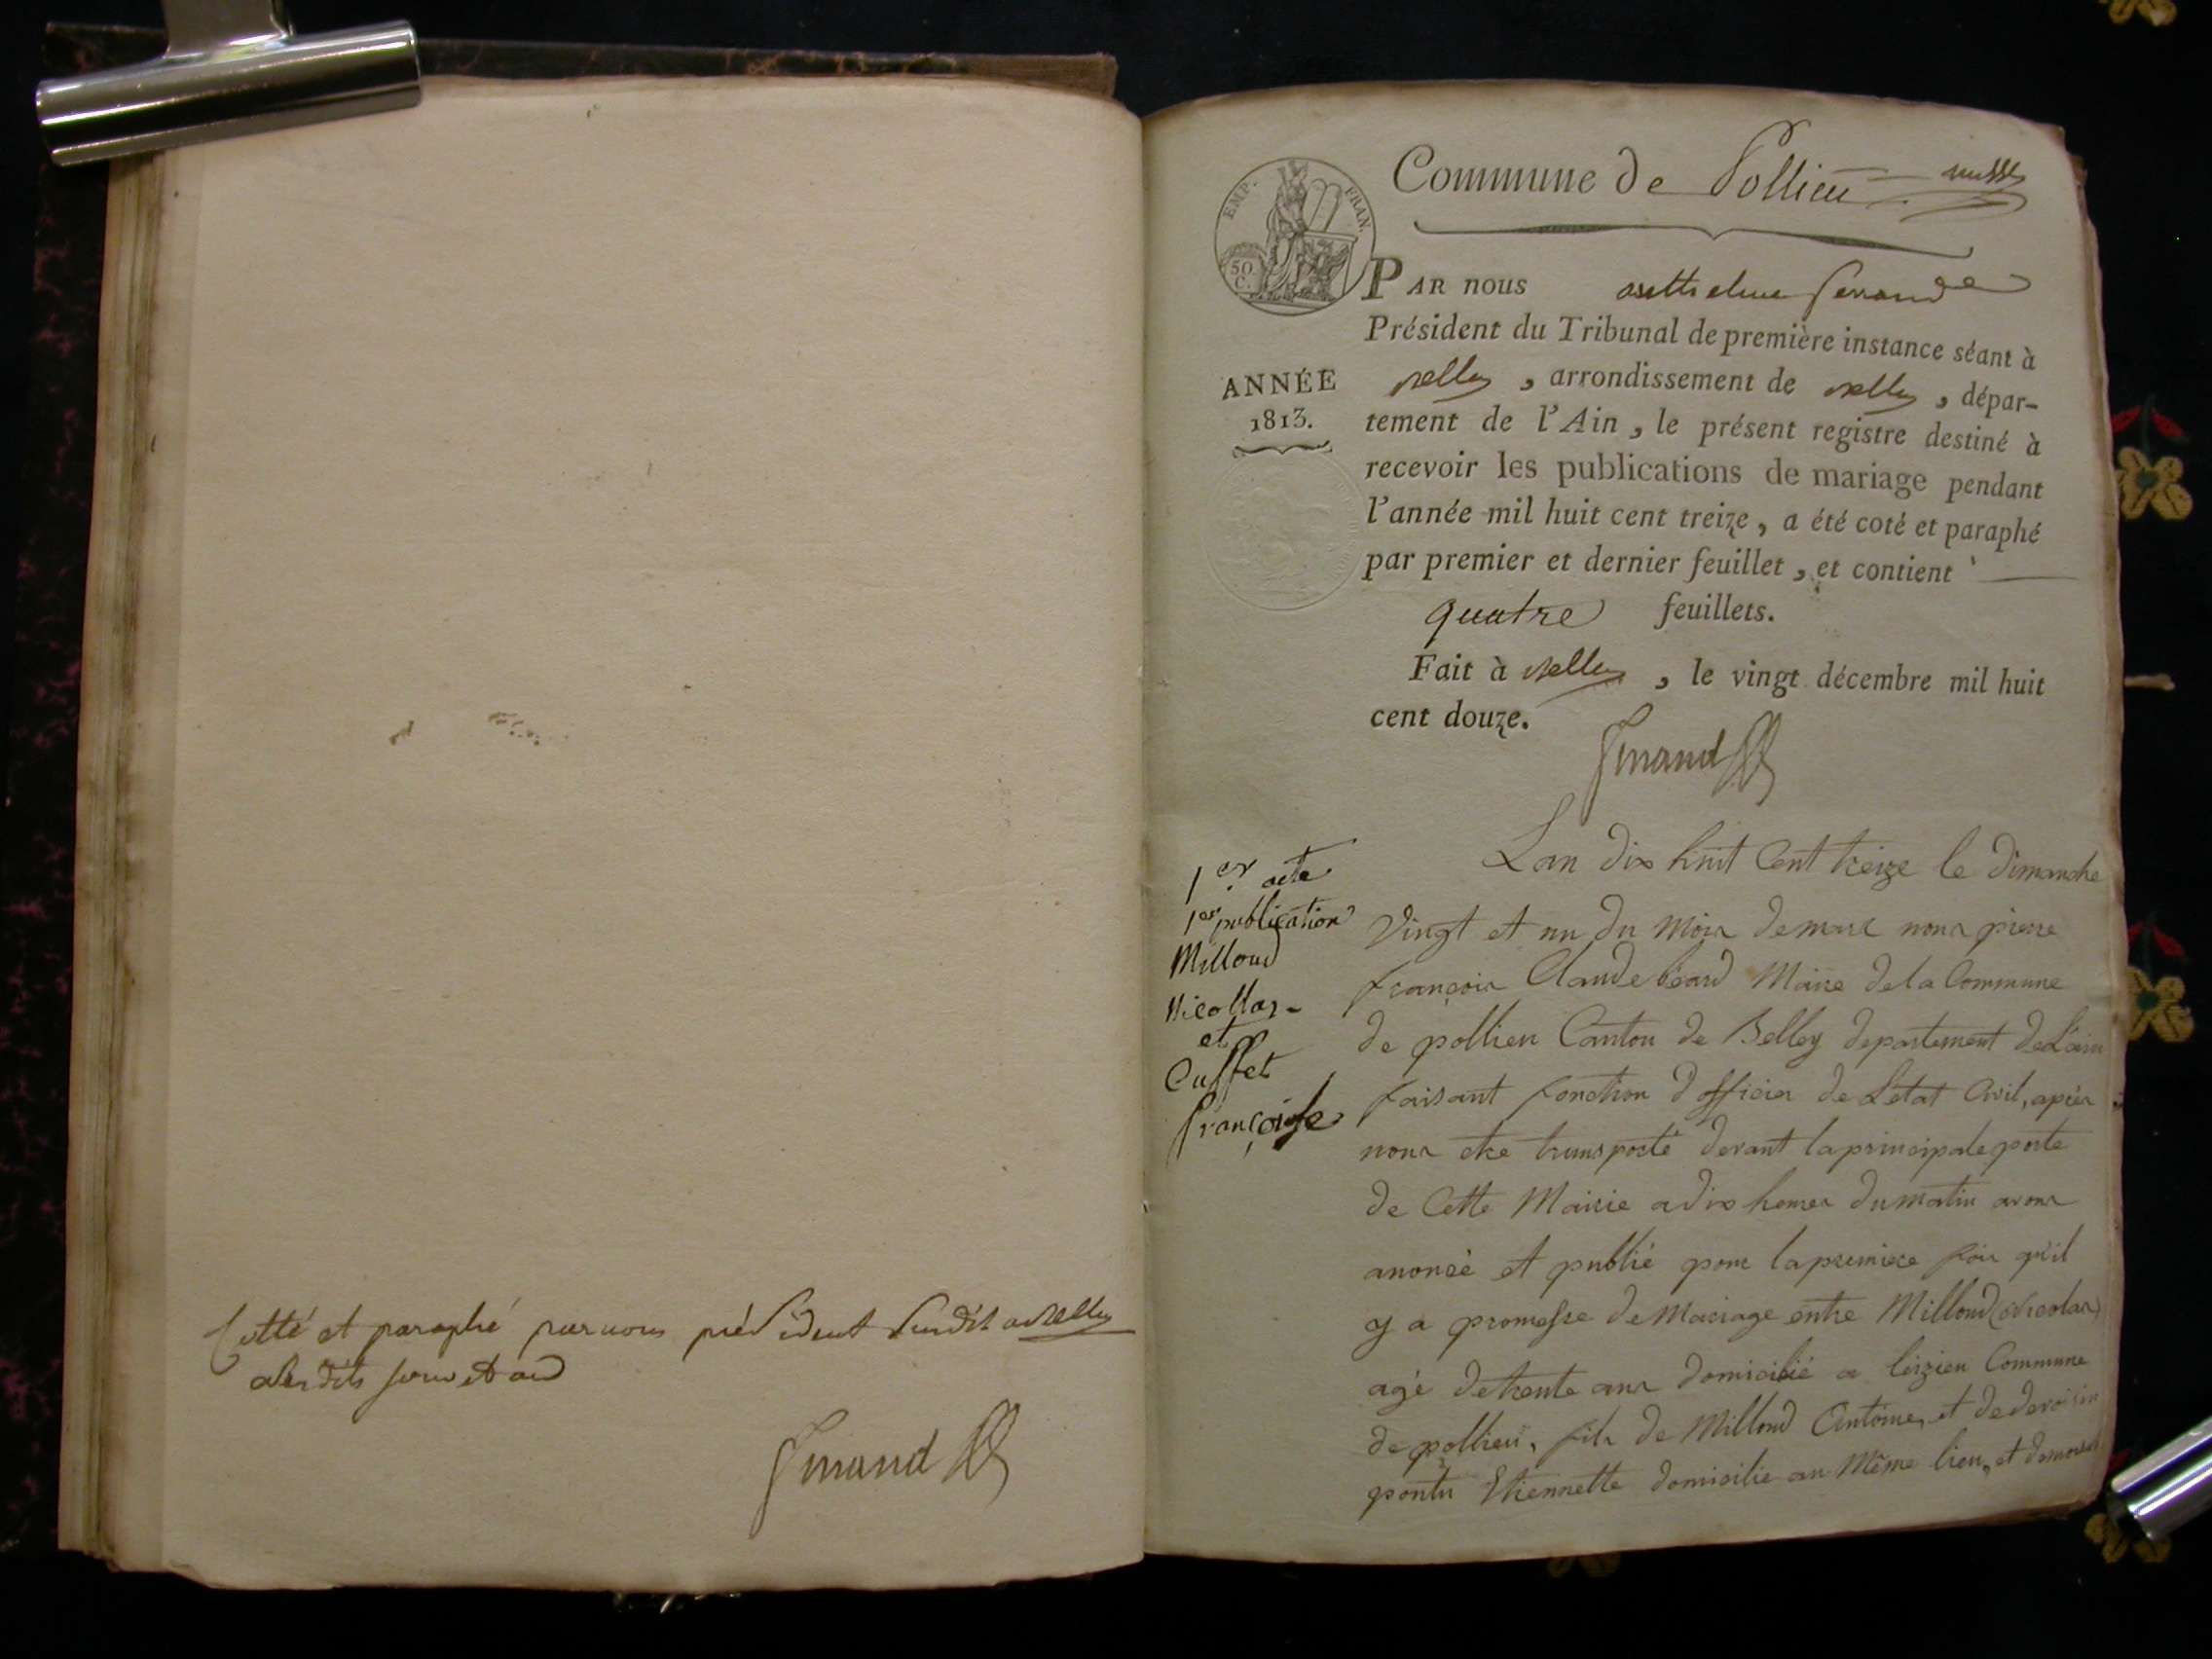 Cotté et paraphé par nous président susdit a Belley
lesdits jour et an
Ferrand
Commune de Pollieu
EMP. FRAN.
50 C.
PAR nous anthelme ferrand
Président du Tribunal de première instance séant à
ANNÉE
1813.
Belley, arrondissement de Belley, dépar-
tement de l'Ain, le présent registre destiné à
recevoir les publications de mariage pendant
l'année mil huit cent treize, a été coté et paraphé
par premier et dernier feuillet, et contient
quatre feuillets.
Fait à Belley, le vingt décembre mil huit
cent douze.
Ferrand
1er acte
1ere publication
Milloud
Nicollas
et
Cuffet
françoise
Lan dix huit Cent treize le dimanche
vingt et un du mois de mars nous pierre
françois Claude béard Maire de la Commune
de pollieu Canton de Belley departement de L'ain
faisant fonction d'officier de Létat Civil, après
nous etre transporté devant la principale porte
de Cette Mairie a dix heures du matin avons
anoncé et publié pour la premiere fois qu'il
y a promesse de Mariage entre Milloud Nicolas
agé de trente ans domicilié a leizieu Commune
de pollieu, fils de Milloud Antoine, et de
pontu Etiennette domicilié au Même lieu, et